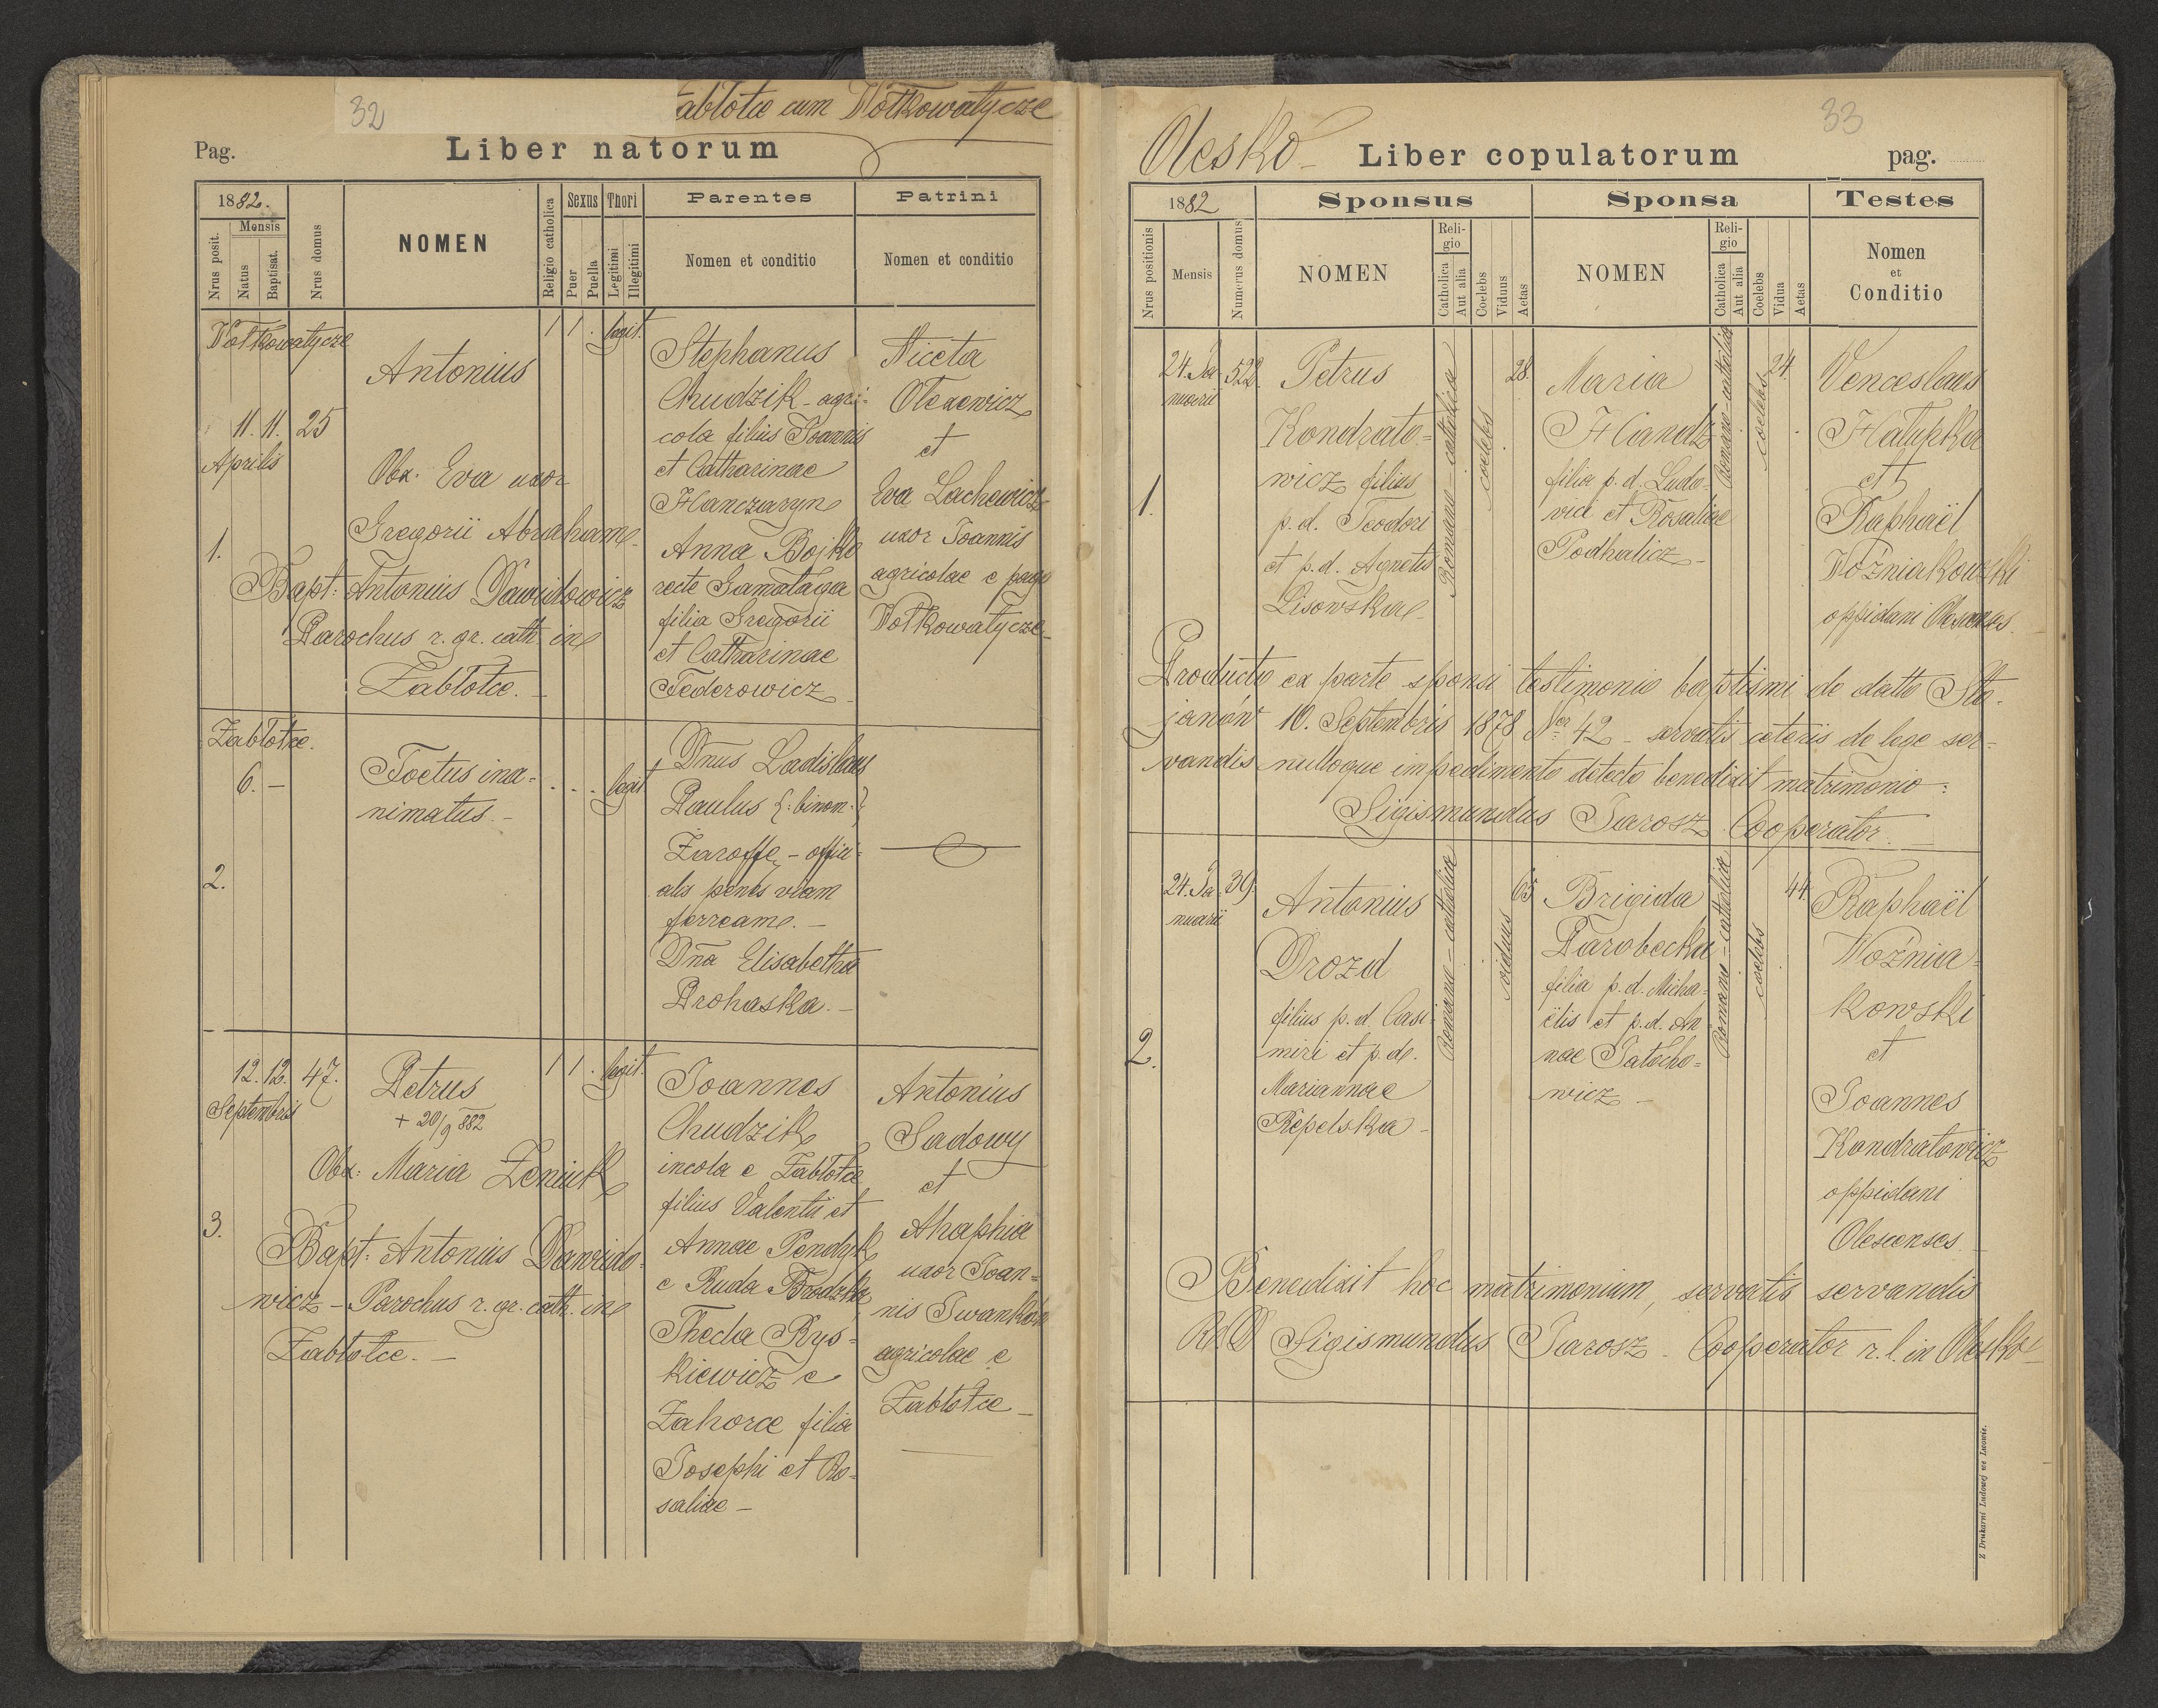 32
Zabłotce cum Wołkowatycze
Pag.
Liber natorum
1882.
Mensis
Nrus posit.
Natus
Baptisat.
Nrus domus
NOMEN
Religio catholica
Sexus
Puer
Puella
Thori
Legitimi
Illegitimi
Parentes
Nomen et conditio
Patrini
Nomen et conditio
Wołkowatycze
11. 11. 25
Aprilis
1.
Antonius
Obx: Eva uxor
Gregorii Abraham
Bapt: Antonius Dawidowicz
Parochus r. gr. cath. in
Zabłotce. -
1 1 . legit.
Stephanus
Chudzik - agri=
cola filius Joannis
et Catharinae
Hanczaryn
Anna Bojko
recte Gamałaga
filia Gregorii
et Catharinae
Federowicz -
Niceta
Olexewicz
et
Eva Lachewicz
uxor Joannis
agricolae e pago
Wołkowatycze -
Zabłotce.
6. -
2.
Foetus ina=
nimatus. -
. . . legit.
Dnus Ladislaus
Paulus (: binom :)
Żaroffe - offici=
alis penes viam
ferream. -
Dña Elisabetha
Prohaska. -
12. 12. 47.
Septembris
3.
Petrus
+ 20/9 882
Obx: Maria Zeniuk
Bapt: Antonius Dawido=
wicz - Parochus r. gr. cath. in
Zabłotce. -
1 1 . legit.
Joannes
Chudzik
incola e Zabłotce
filius Valentii et
Annae Pendyk
e Ruda Brodzka
Thecla Rys=
kiewicz e
Zahorce filia
Josephi et Ro=
saliae -
Antonius
Sadowy
et
Ahaphia
uxor Joan=
nis Iwankow
agricolae e
Zabłotce -
33
Olesko -
Liber copulatorum
pag.
1882
Nrus positionis
Mensis
Numerus domus
Sponsus
NOMEN
Reli-
gio
Catholica
Aut alia
Coelebs
Viduus
Aetas
Sponsa
NOMEN
Reli-
gio
Catholica
Aut alia
Coelebs
Vidua
Aetas
Testes
Nomen
et
Conditio
1.
24. Ja=
nuarii
522.
Petrus
Kondrato=
wicz filius
p. d. Teodori
et p. d. Agnetis
Lisowska -
Romano - catholica
coelebs
28.
Maria
Handz
filia p. d. Ludo=
vici et Rosaliae
Podhalicz -
Romano - catholica
coelebs
24.
Venceslaus
Hałupka
et
Raphaël
Woźniakowski
oppidani Olescenses.
Producto ex parte sponsi testimonio baptismi de datto Sto=
janów 10. Septembris 1878 Nr 42 - servatis ceteris de lege ser=
vandis nulloque impedimento detecto benedixit matrimonio:
Sigismundus Jarosz Cooperator. -
2.
24. Ja=
nuarii
39.
Antonius
Drozd
filius p. d. Casi=
miri et p. d.
Mariannae
Repelska -
Romano - catholica
viduus
65
Brigida
Parobecka
filia p. d. Micha=
ëlis et p. d. An=
nae Jatocho=
wicz -
Romano - catholica
coelebs
44.
Raphaël
Woźnia=
kowski
et
Joannes
Kondratowicz
oppidani
Olescenses. -
Benedixit hoc matrimonium, servatis servandis
RdD Sigismundus Jarosz - Cooperator r. l. in Olesko -
Z Drukarni Ludowej we Lwowie.